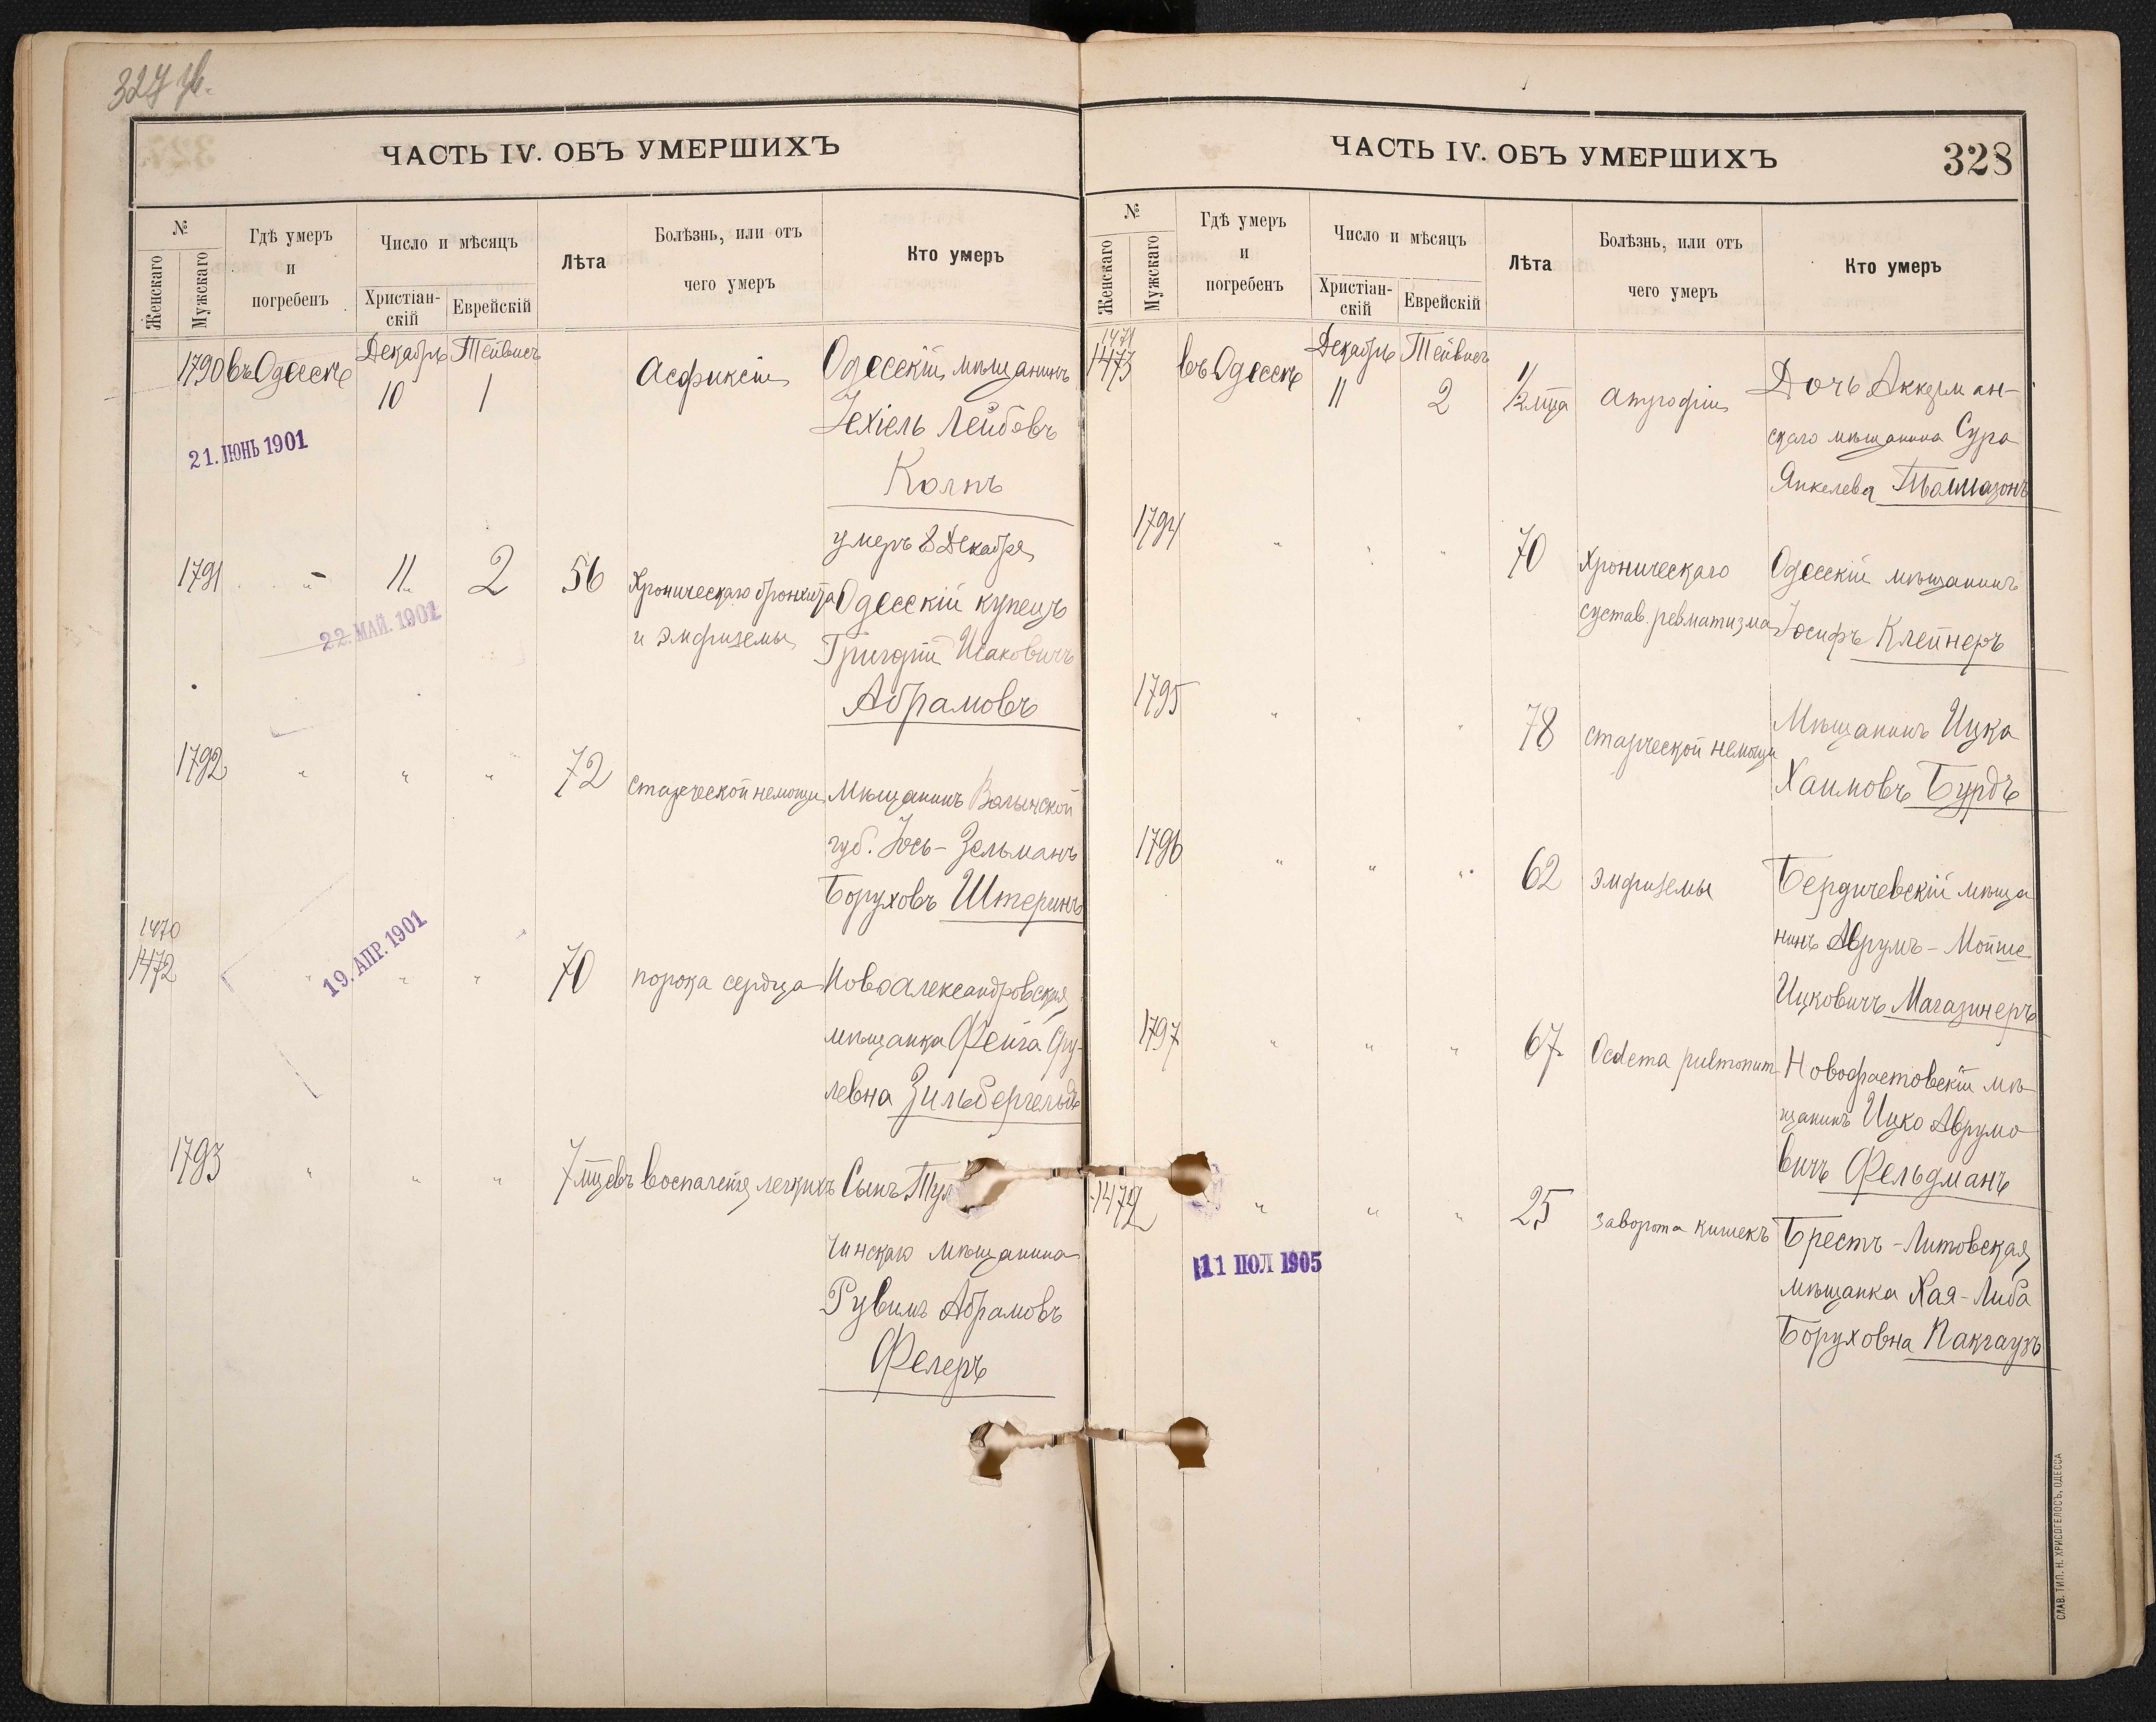 327 об.
ЧАСТЬ IV. ОБЪ УМЕРШИХЪ
№
Женскаго
Мужскаго
Гдѣ умеръ
и
погребенъ
Число и мѣсяцъ
Христіан-
скій
Еврейскій
Лѣта
Болѣзнь, или отъ
чего умеръ
Кто умеръ
1790 въ Одессѣ Декабрь 10 Тейвисъ 1 Асфиксіи Одесскій мѣщанинъ
Іехіель Лейбовъ
21. ІЮНЬ 1901
Колпъ
умеръ 8 Декабря
1791 " 11 2 56 Хроническаго бронхита Одесскій купецъ
22. МАЙ. 1901
и эмфиземы Григорій Исаковичъ
Абрамовъ
1792 " " " 72 старческой немощи Мѣщанинъ Волынской
губ. Іось-Зельманъ
Боруховъ Штеринъ
1470
1472 " " " 70 порока сердца Новоалександровская
19. АПР. 1901
мѣщанка Фейга Сру-
левна Зильбергельдъ
1793 " " " 7 мцевъ воспаленія легкихъ Сынъ Тул
чинскаго мѣщанина
Рувимъ Абрамовъ
Фелеръ
ЧАСТЬ IV. ОБЪ УМЕРШИХЪ
328
№
Женскаго
Мужскаго
Гдѣ умеръ
и
погребенъ
Число и мѣсяцъ
Христіан-
скій
Еврейскій
Лѣта
Болѣзнь, или отъ
чего умеръ
Кто умеръ
1471
1473 въ Одессѣ Декабрь 11 Тейвисъ 2 1/2 мца атрофіи Дочь Аккерман-
скаго мѣщанина Сура
Янкелева
1794 " " " 70 Хроническаго Одесскій мѣщанинъ
сустав. ревматизма Іосифъ Клейнеръ
1795 " " " 78 старческой немощи Мѣщанинъ Ицка
Хаимовъ Бурдъ
1796 " " " 62 эмфиземы Бердичевскій мѣща
нинъ Аврумъ-Мойше
Ицковичъ Магазинеръ
1797 " " " 67 Oedema pulmonum Новофастовскій мѣ
щанинъ Ицко Аврумо
вичъ Фельдманъ
1472 " " " 25 заворота кишекъ Брестъ-Литовская
11 ІЮЛ 1905
мѣщанка Хая-Либа
Боруховна Пакгаузъ
СЛАВ. ТИП. Н. ХРИСОГЕЛОСЪ, ОДЕССА